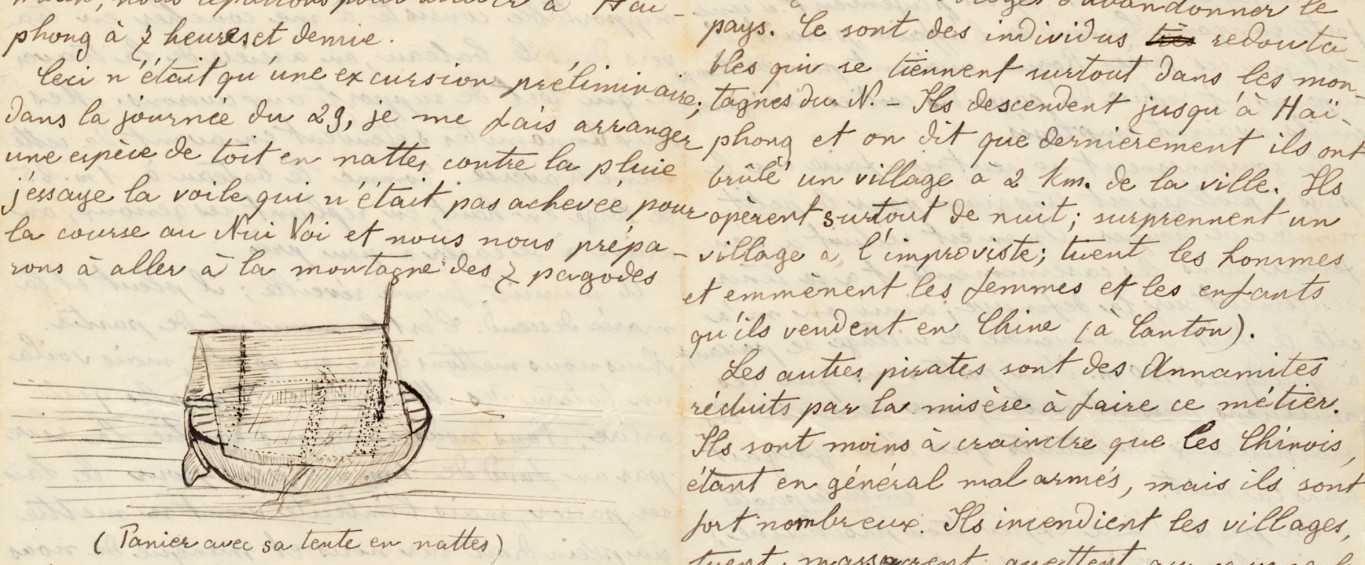 nous repartions pour arriver à Haï-
phong à 7 heures et demie.
Ceci n'était qu'une excursion préliminaire;
Dans la journée du 29, je me fais arranger
une espèce de toit en nattes contre la pluie
j'essaye la voile qui n'était pas achevée pour
la course au Nui Voi et nous nous prépa-
rons à aller à la montagne des 7 pagodes
(Panier avec sa tente en nattes)
d'abandonner le
pays. Ce sont des individus très redouta
bles qui se tiennent surtout dans les mon-
tagnes du N. - Ils descendent jusqu'à Haï-
phong et on dit que dernièrement ils ont
brûlé un village à 2 Km. de la ville. Ils
opèrent surtout de nuit; surprennent un
village à l'improviste; tuent les hommes
et emmènent les femmes et les enfants
qu'ils vendent en Chine (à Canton).
Les autres pirates sont des Annamites
réduits par la misère à faire ce métier.
Ils sont moins à craindre que les Chinois,
étant en général mal armés, mais ils sont
fort nombreux. Ils incendient les villages,
tuent, massacrent, guettent